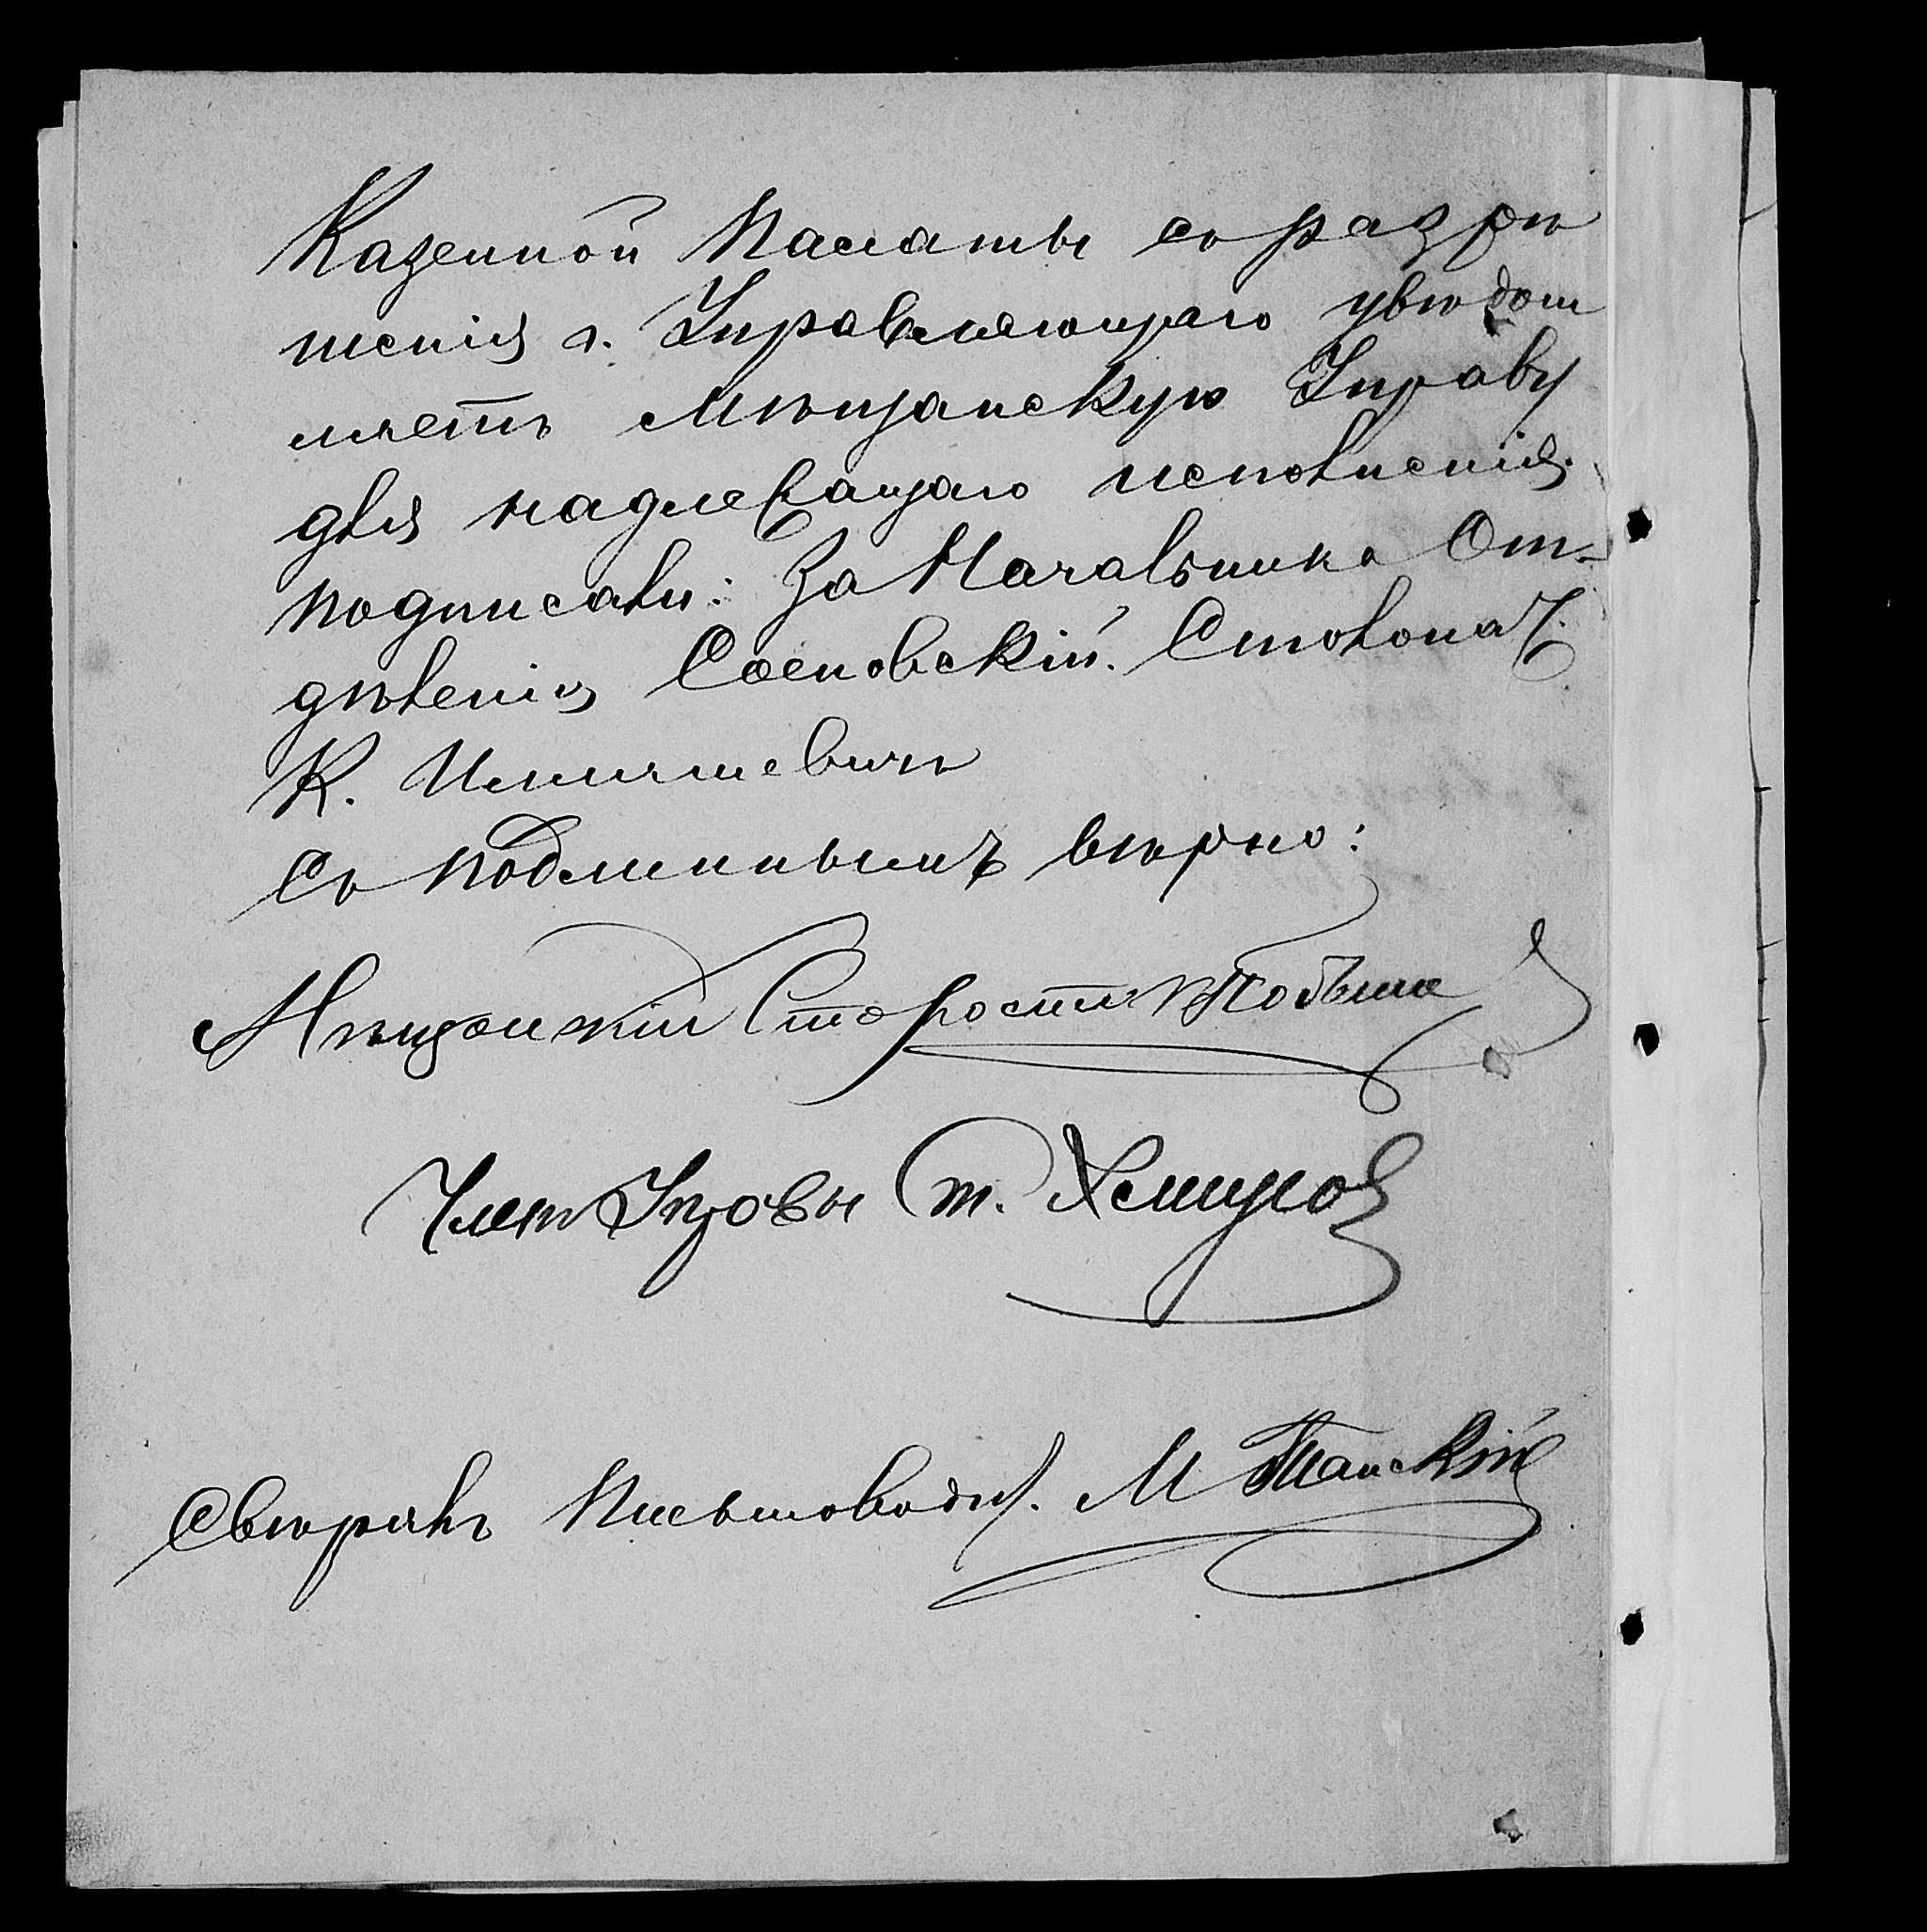 Казенной Палаты съ разрѣ
шенія г. Управляющаго увѣдом
ляетъ Мѣщанскую Управу
для надлежащаго исполненія.
подписали: За Начальника От-
дѣленія Сосновскій. Столонач.
К.
Съ подлиннымъ вѣрно:
Мѣщанскій Староста
Членъ Управы
Свѣрялъ Письмовод. М